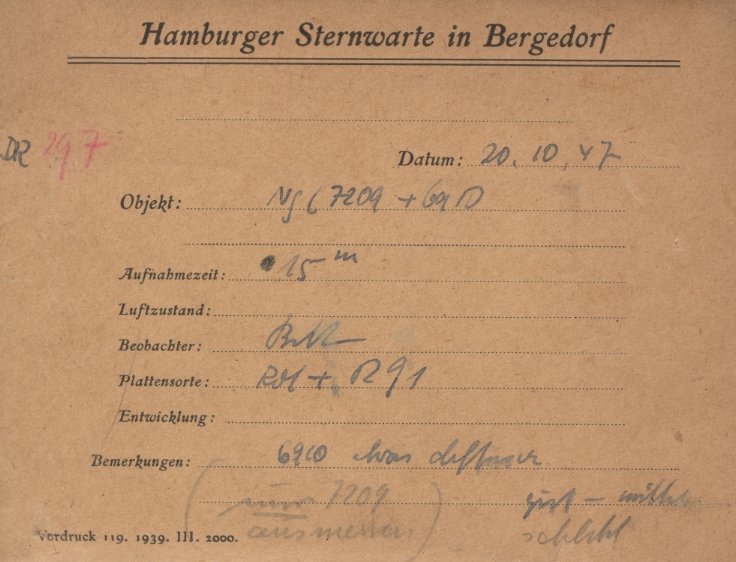 Hamburger Sternwarte in Bergedorf
DR 297
Datum: 20. 10. 47
Objekt: NGC 7209 + 6910
Aufnahmezeit: 15 m
Luftzustand:
Beobachter:
Plattensorte: Rot +
Entwicklung:
Bemerkungen: 6910 etwas diffuser
(nur 7209 gut – mittel
ausmessen) schlecht
Vordruck 119. 1939. III. 2000.